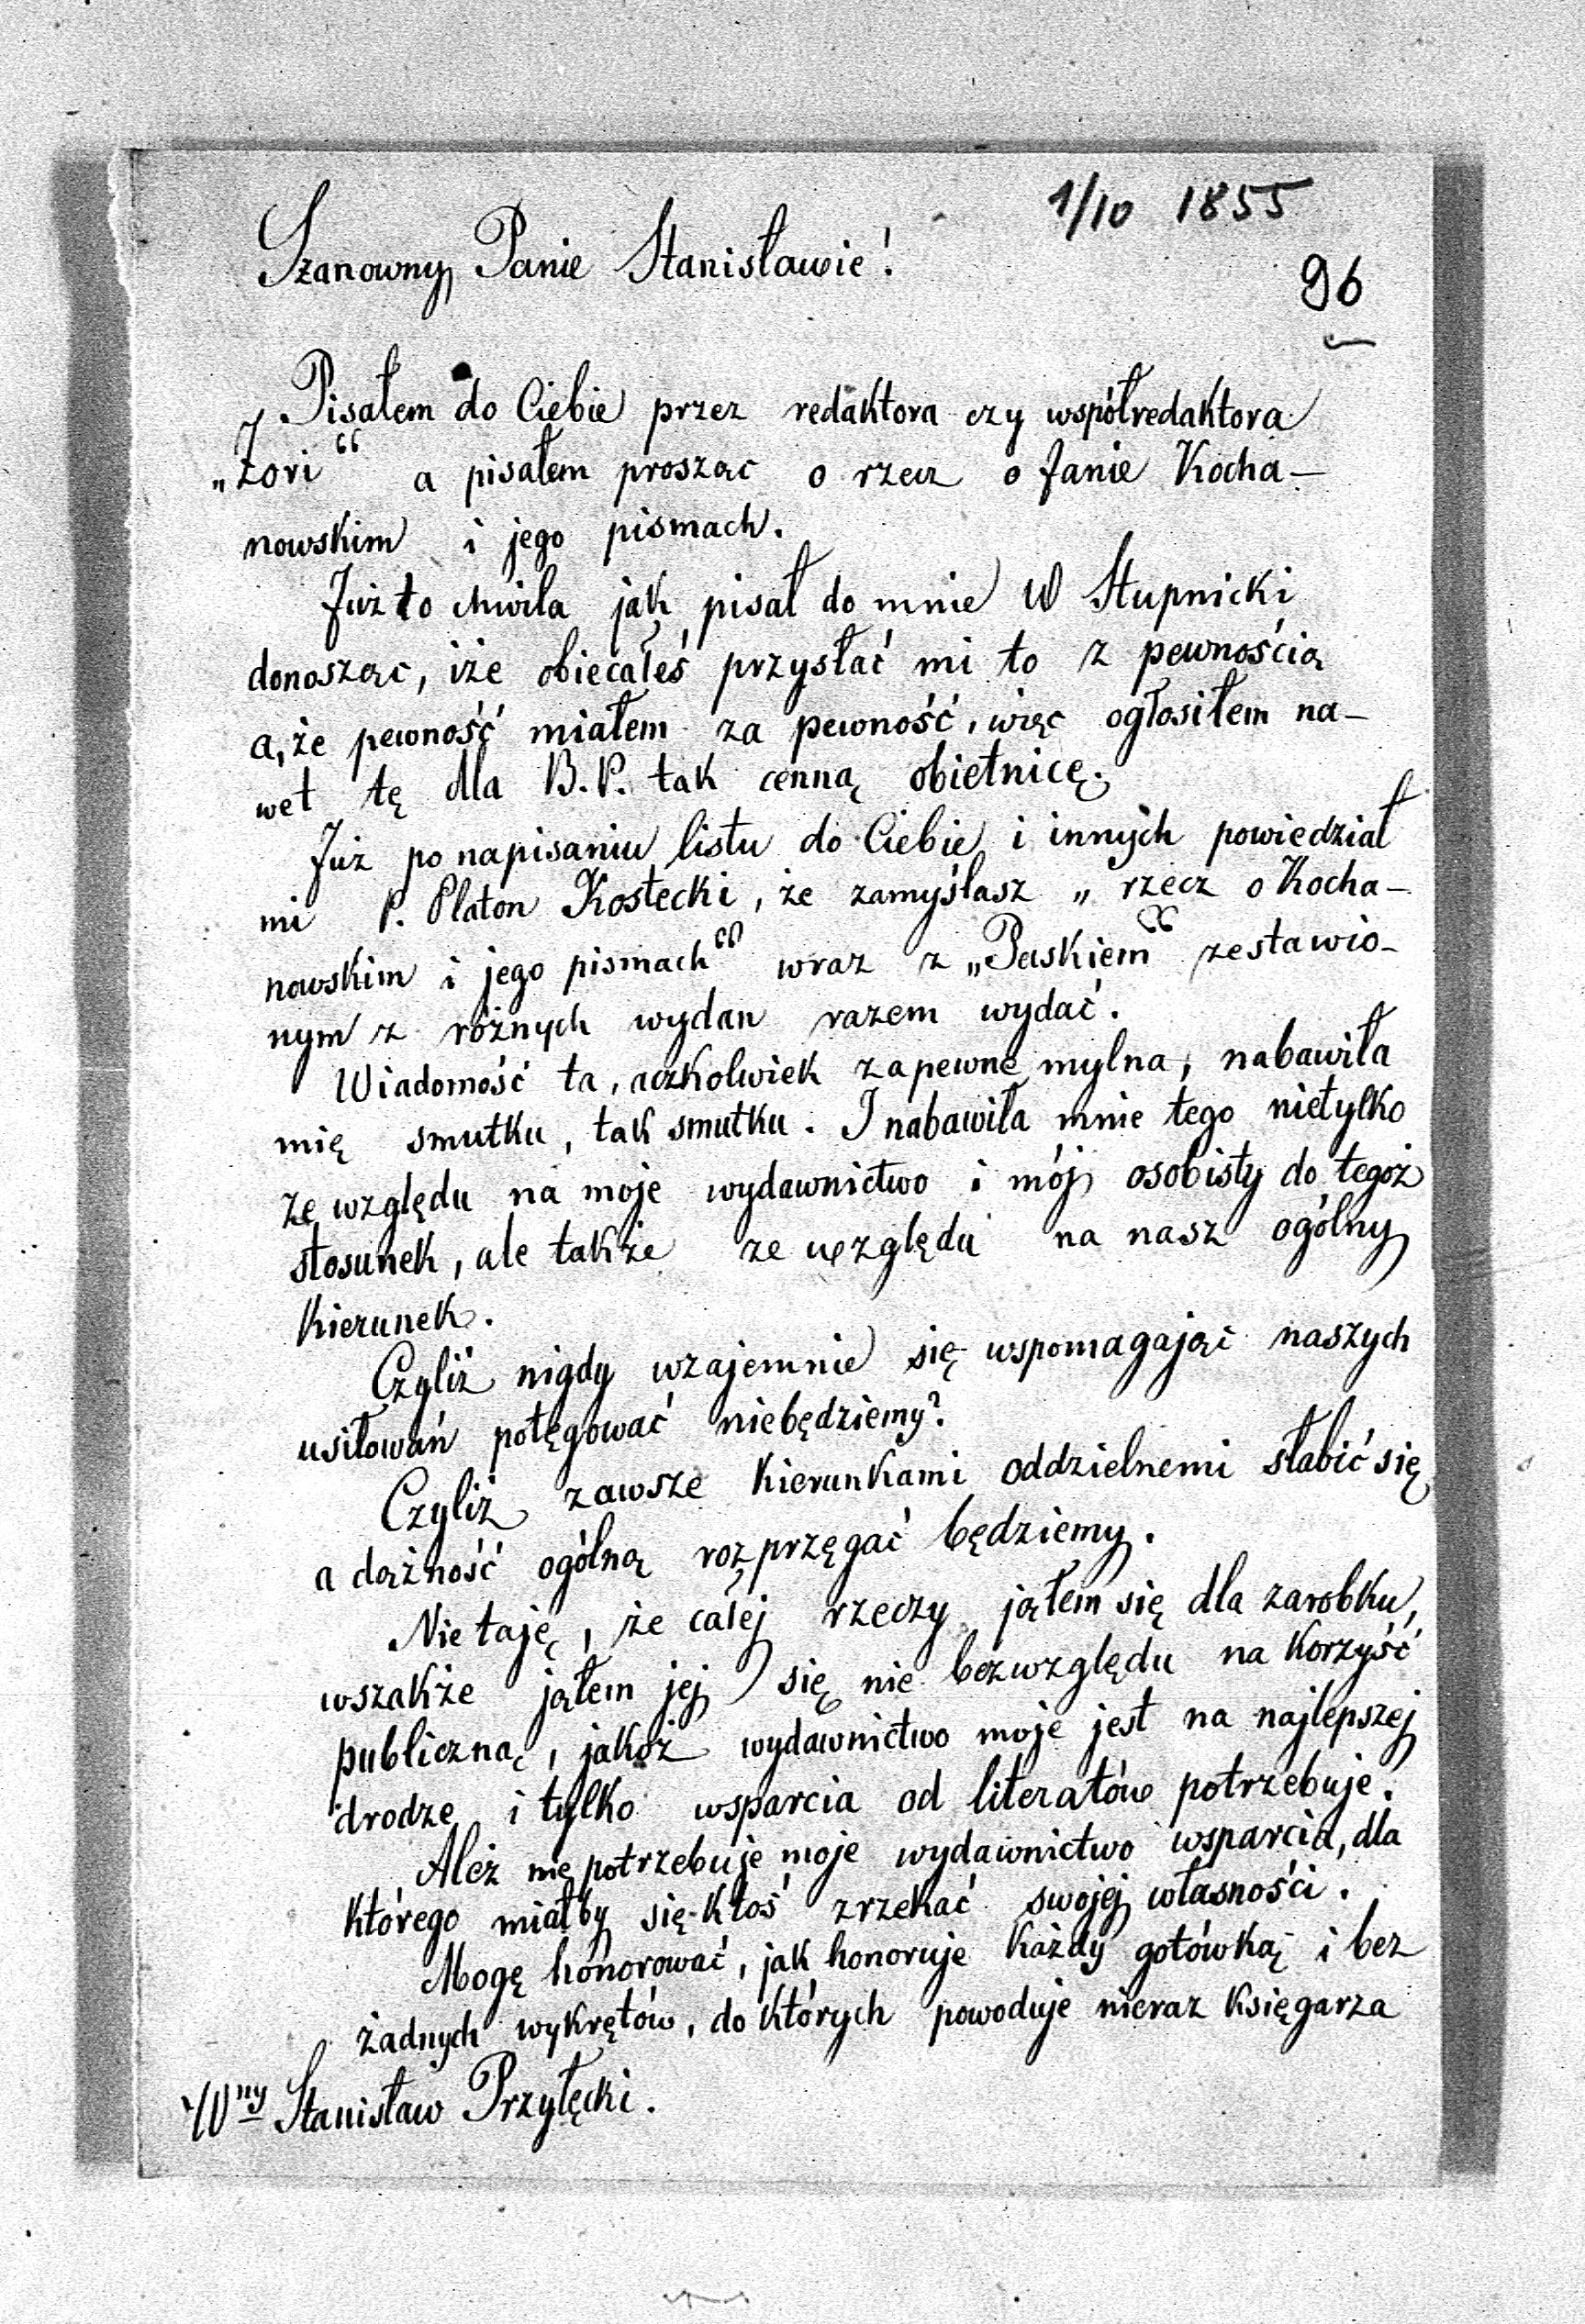 1/10 1855
Szanowny Panie Stanisławie!
96
Pisałem do Ciebie przez redaktora czy współredaktora
„Zori“ a pisałem prosząc o rzecz o Janie Kocha-
nowskim i jego pismach.
Już to chwila jak pisał do mnie W Stupnicki
donosząc, iże obiecałeś przysłać mi to z pewnością
a, że pewność miałem za pewność, więc ogłosiłem na-
wet tę dla B.P. tak cenną obietnicę.
Już po napisaniu listu do Ciebie i innych powiedział
mi P. Platon Kostecki, że zamyślasz „rzecz o Kocha-
nowskim i jego pismach“ wraz z „Paskiem“ zestawio-
nym z różnych wydan razem wydać.
Wiadomość ta, aczkolwiek zapewne mylna, nabawiła
mię smutku, tak smutku. I nabawiła mnie tego nietylko
ze względu na moje wydawnictwo i mój osobisty do tegoż
stosunek, ale także ze względu na nasz ogólny
kierunek.
Czyliż nigdy wzajemnie się wspomagając naszych
usiłowań potęgować niebędziemy?
Czyliż zawsze kierunkami oddzielnemi słabić się
a dążność ogólną rozprzęgać będziemy.
Nie taję, że całej rzeczy jąłem się dla zarobku,
wszakże jąłem jej się nie bezwzględu na korzyść
publiczną, jakoż wydawnictwo moje jest na najlepszej
drodze i tylko wsparcia od literatów potrzebuje.
Ależ nie potrzebuje moje wydawnictwo wsparcia, dla
którego miałby się ktoś zrzekać swojej własności.
Mogę honorować, jak honoruje każdy gotówką i bez
żadnych wykrętów, do których powoduje nieraz księgarza
Wny Stanisław Przyłęcki.